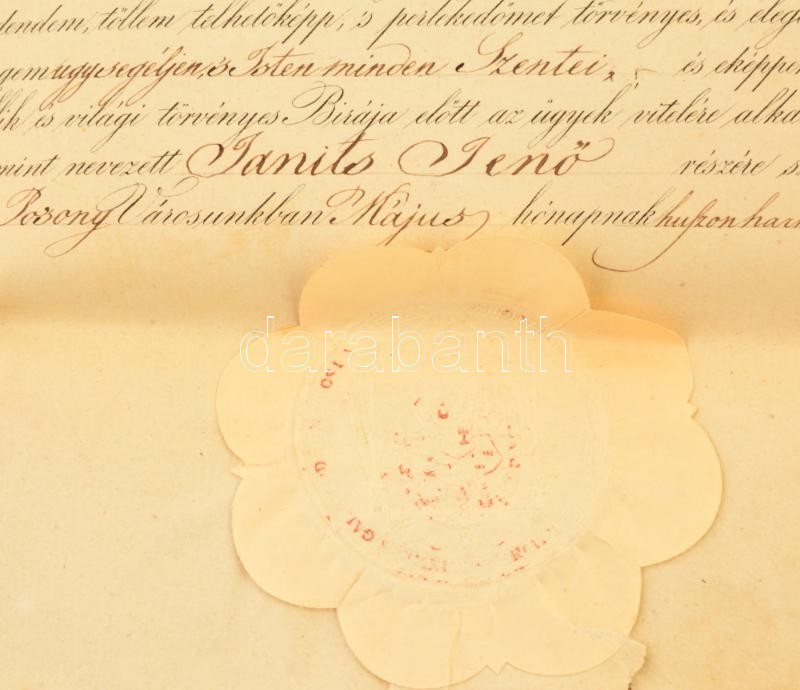 tendem, töllem telhetőképp, 's perlekedőmet törvényes, és eleg
gem úgy segéljen, 's Isten minden Szentei, – és eképpen
lik és világi törvényes Birája előtt az ügyek' vitelére alka
mint nevezett Janits Jenő részére s
Posony Városunkban Május hónapnak huszon har
darabanth